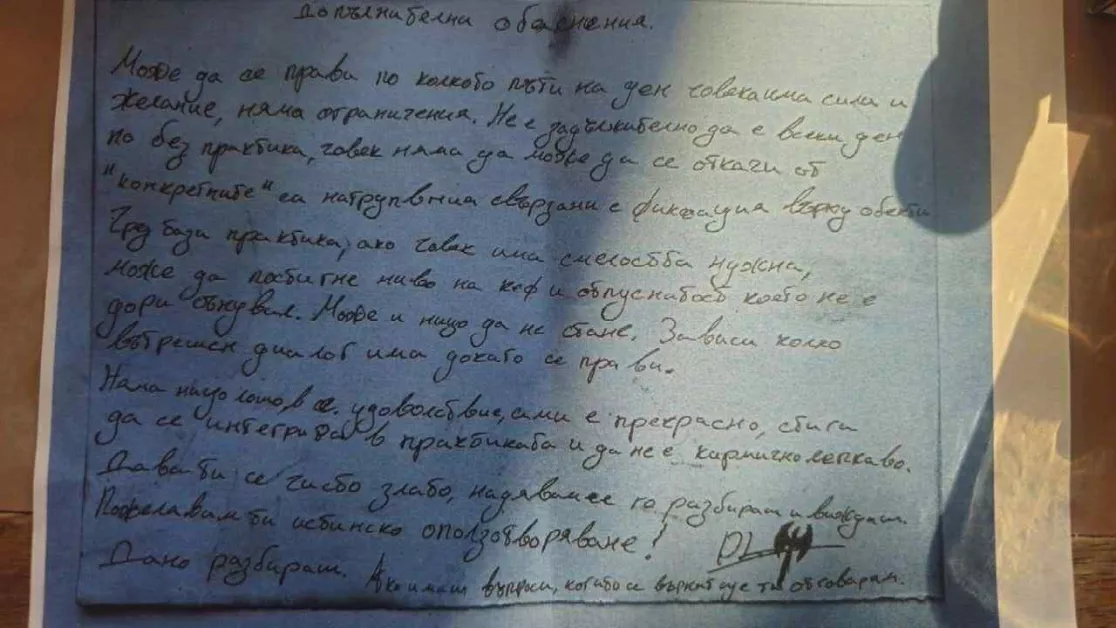 Допълнителна обяснения.
Може да се прави по колкото пъти на ден човек има сила и
желание, няма ограничения. Не е задължително да е всеки ден
но без практика, човек няма да може да се откачи от
"конкретните" си натрупвния свързани с фиксация върху обекти
Чрез тази практика, ако човек има смелостта нужна,
може да постигне ниво на кеф и отпуснатост което не е
дори сънувал. Може и нищо да не стане. Зависи колко
вътрешен диалог има докато се прави.
Няма нищо лошо в удоволствие, е прекрасно, стига
да се интегрира в практиката и да не е кармично лепкаво.
Давам ти се чисто злато, надявам се го разбираш и виждаш.
Пожелавам ти истинско оползотворяване!
Дано разбираш. Ако имаш въпроси, когато се върна ще ти отговарям.